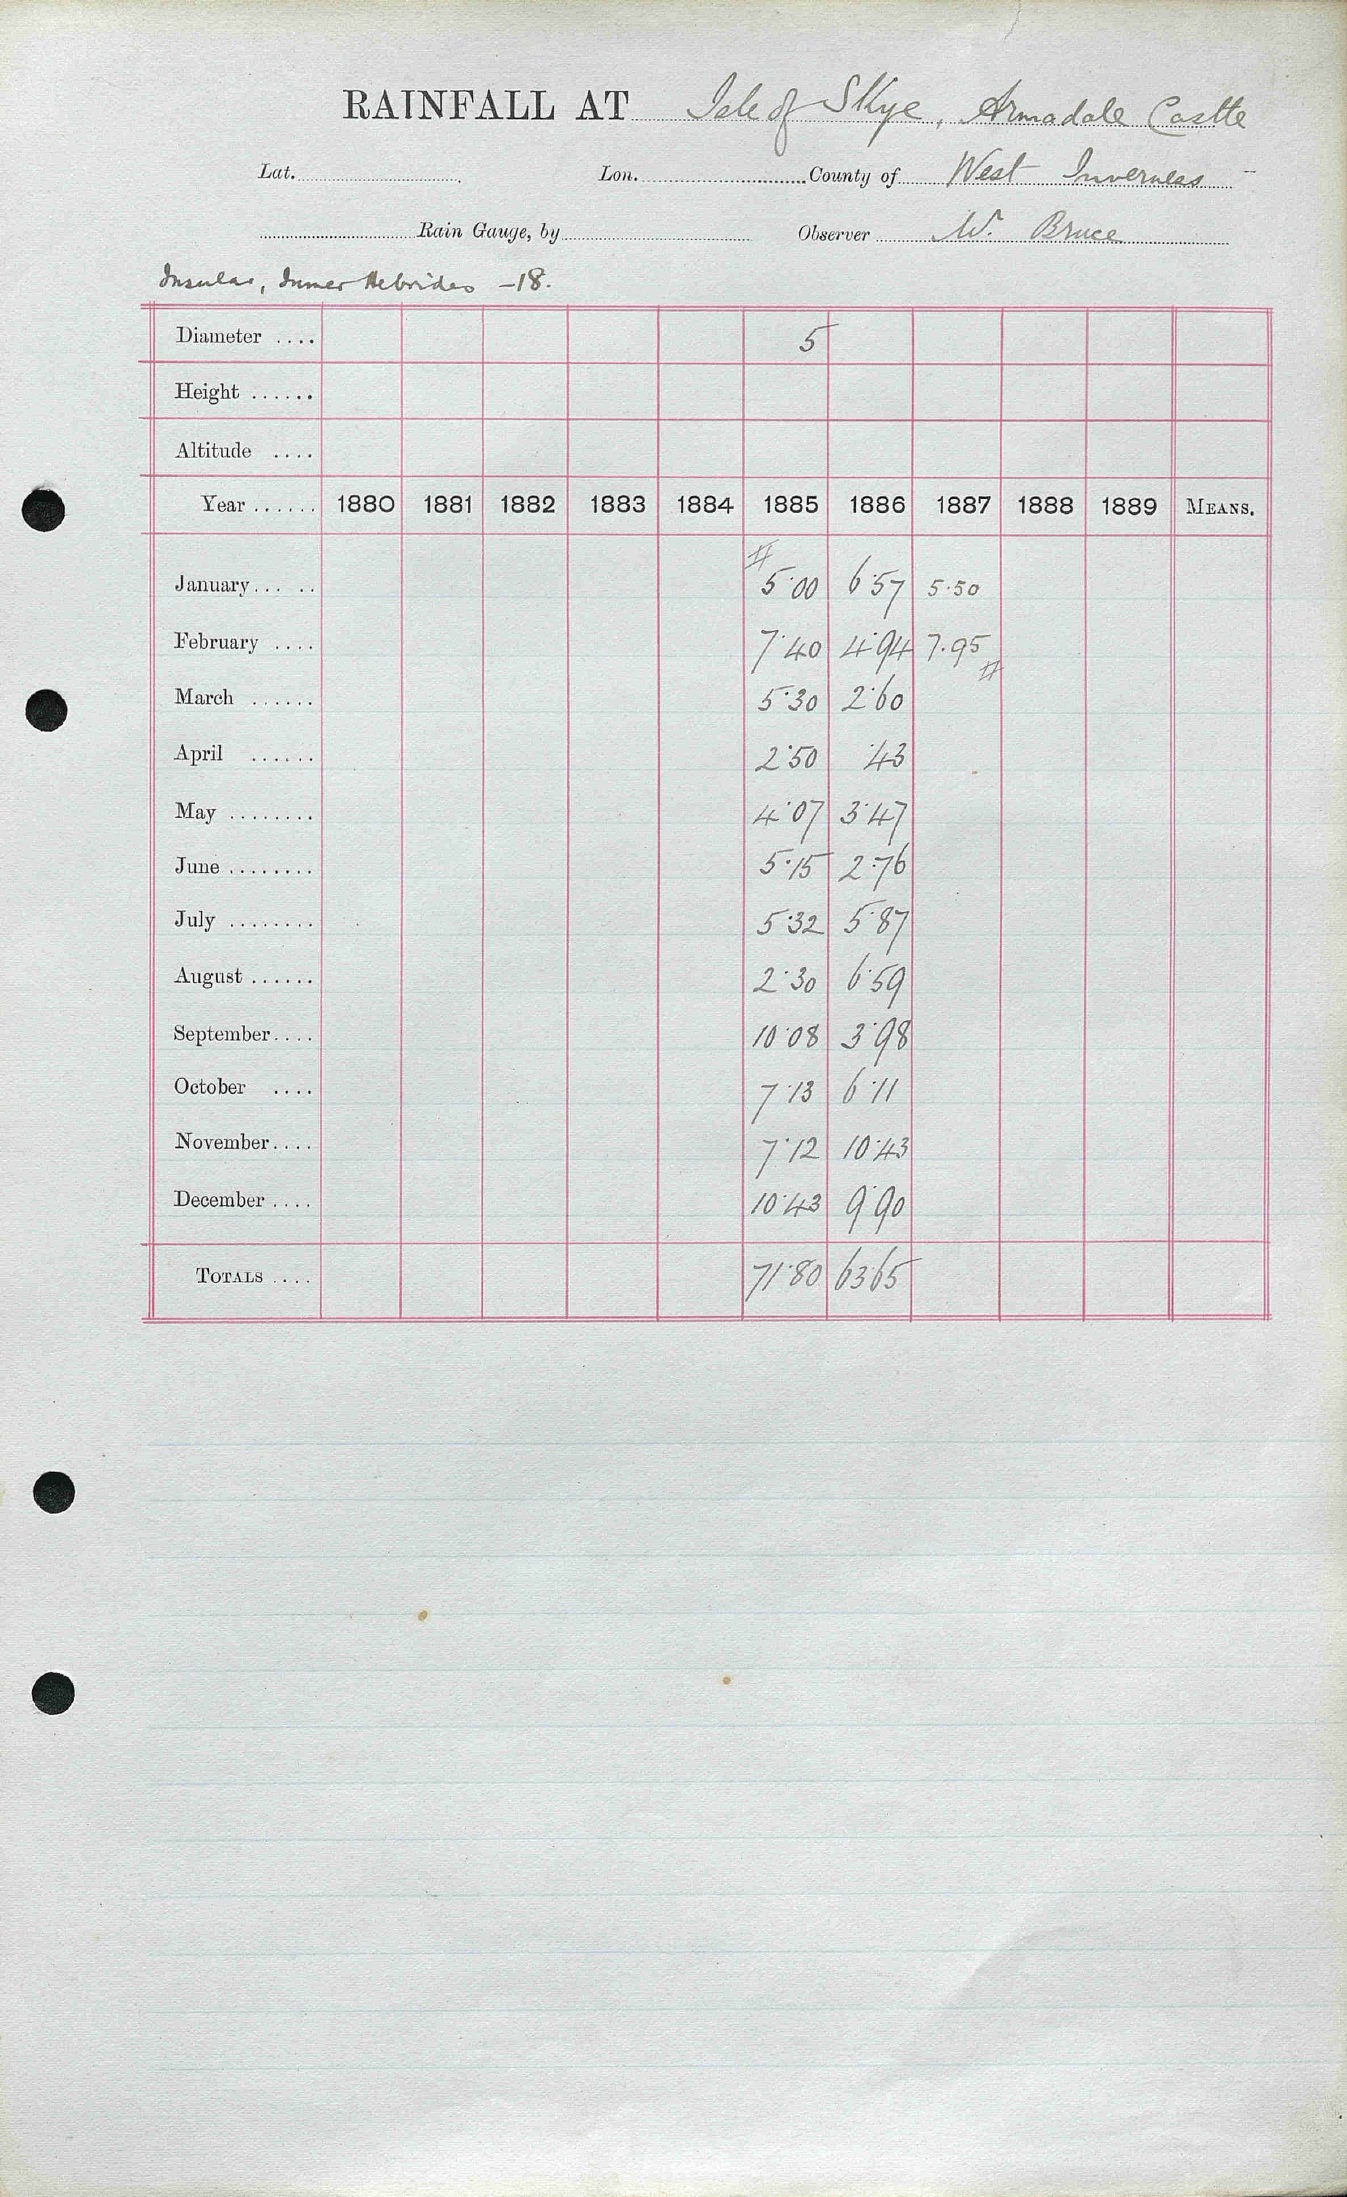 RAINFALL AT Isle of Skye, Armadale Castle
Lat. Lon. County of West Inverness
Rain Gauge, by Observer W. Bruce
Insular, Inner Hebrides -18.
Diameter .... 5
Height ......
Altitude ....
Year ...... 1880 1881 1882 1883 1884 1885 1886 1887 1888 1889 MEANS.
#
January... .. 5·00 6·57 5·50
February .... 7·40 4·94 7·95
#
March ...... 5·30 2·60
April ...... 2·50 ·43
May ........ 4·07 3·47
June ........ 5·15 2·76
July ........ 5·32 5·87
August ...... 2·30 6·59
September.... 10·08 3·98
October .... 7·13 6·11
November.... 7·12 10·43
December .... 10·43 9·90
TOTALS .... 71·80 63·65